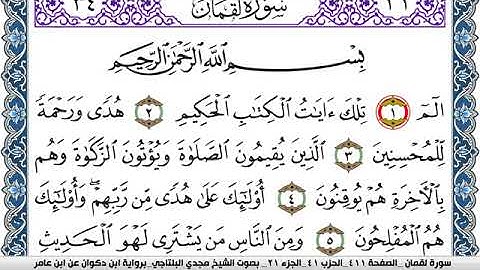 ٣٤ سُورَةُ لُقْمَانَ ٣١
بِسْمِ اللَّهِ الرَّحْمَٰنِ الرَّحِيمِ
الٓمٓ ١ تِلْكَ ءَايَٰتُ الْكِتَٰبِ الْحَكِيمِ ٢ هُدًى وَرَحْمَةً
لِّلْمُحْسِنِينَ ٣ الَّذِينَ يُقِيمُونَ الصَّلَوٰةَ وَيُؤْتُونَ الزَّكَوٰةَ وَهُم
بِالْأَخِرَةِ هُمْ يُوقِنُونَ ٤ أُوْلَٰٓئِكَ عَلَىٰ هُدًى مِّن رَّبِّهِمْ ۖ وَأُوْلَٰٓئِكَ
هُمُ الْمُفْلِحُونَ ٥ وَمِنَ النَّاسِ مَن يَشْتَرِى لَهْوَ الْحَدِيثِ
سورة لقمان _الصفحة ٤١١_الحزب ٤١_الجزء ٢١ _ بصوت الشيخ مجدي البلتاجي_برواية ابن ذكوان عن ابن عامر